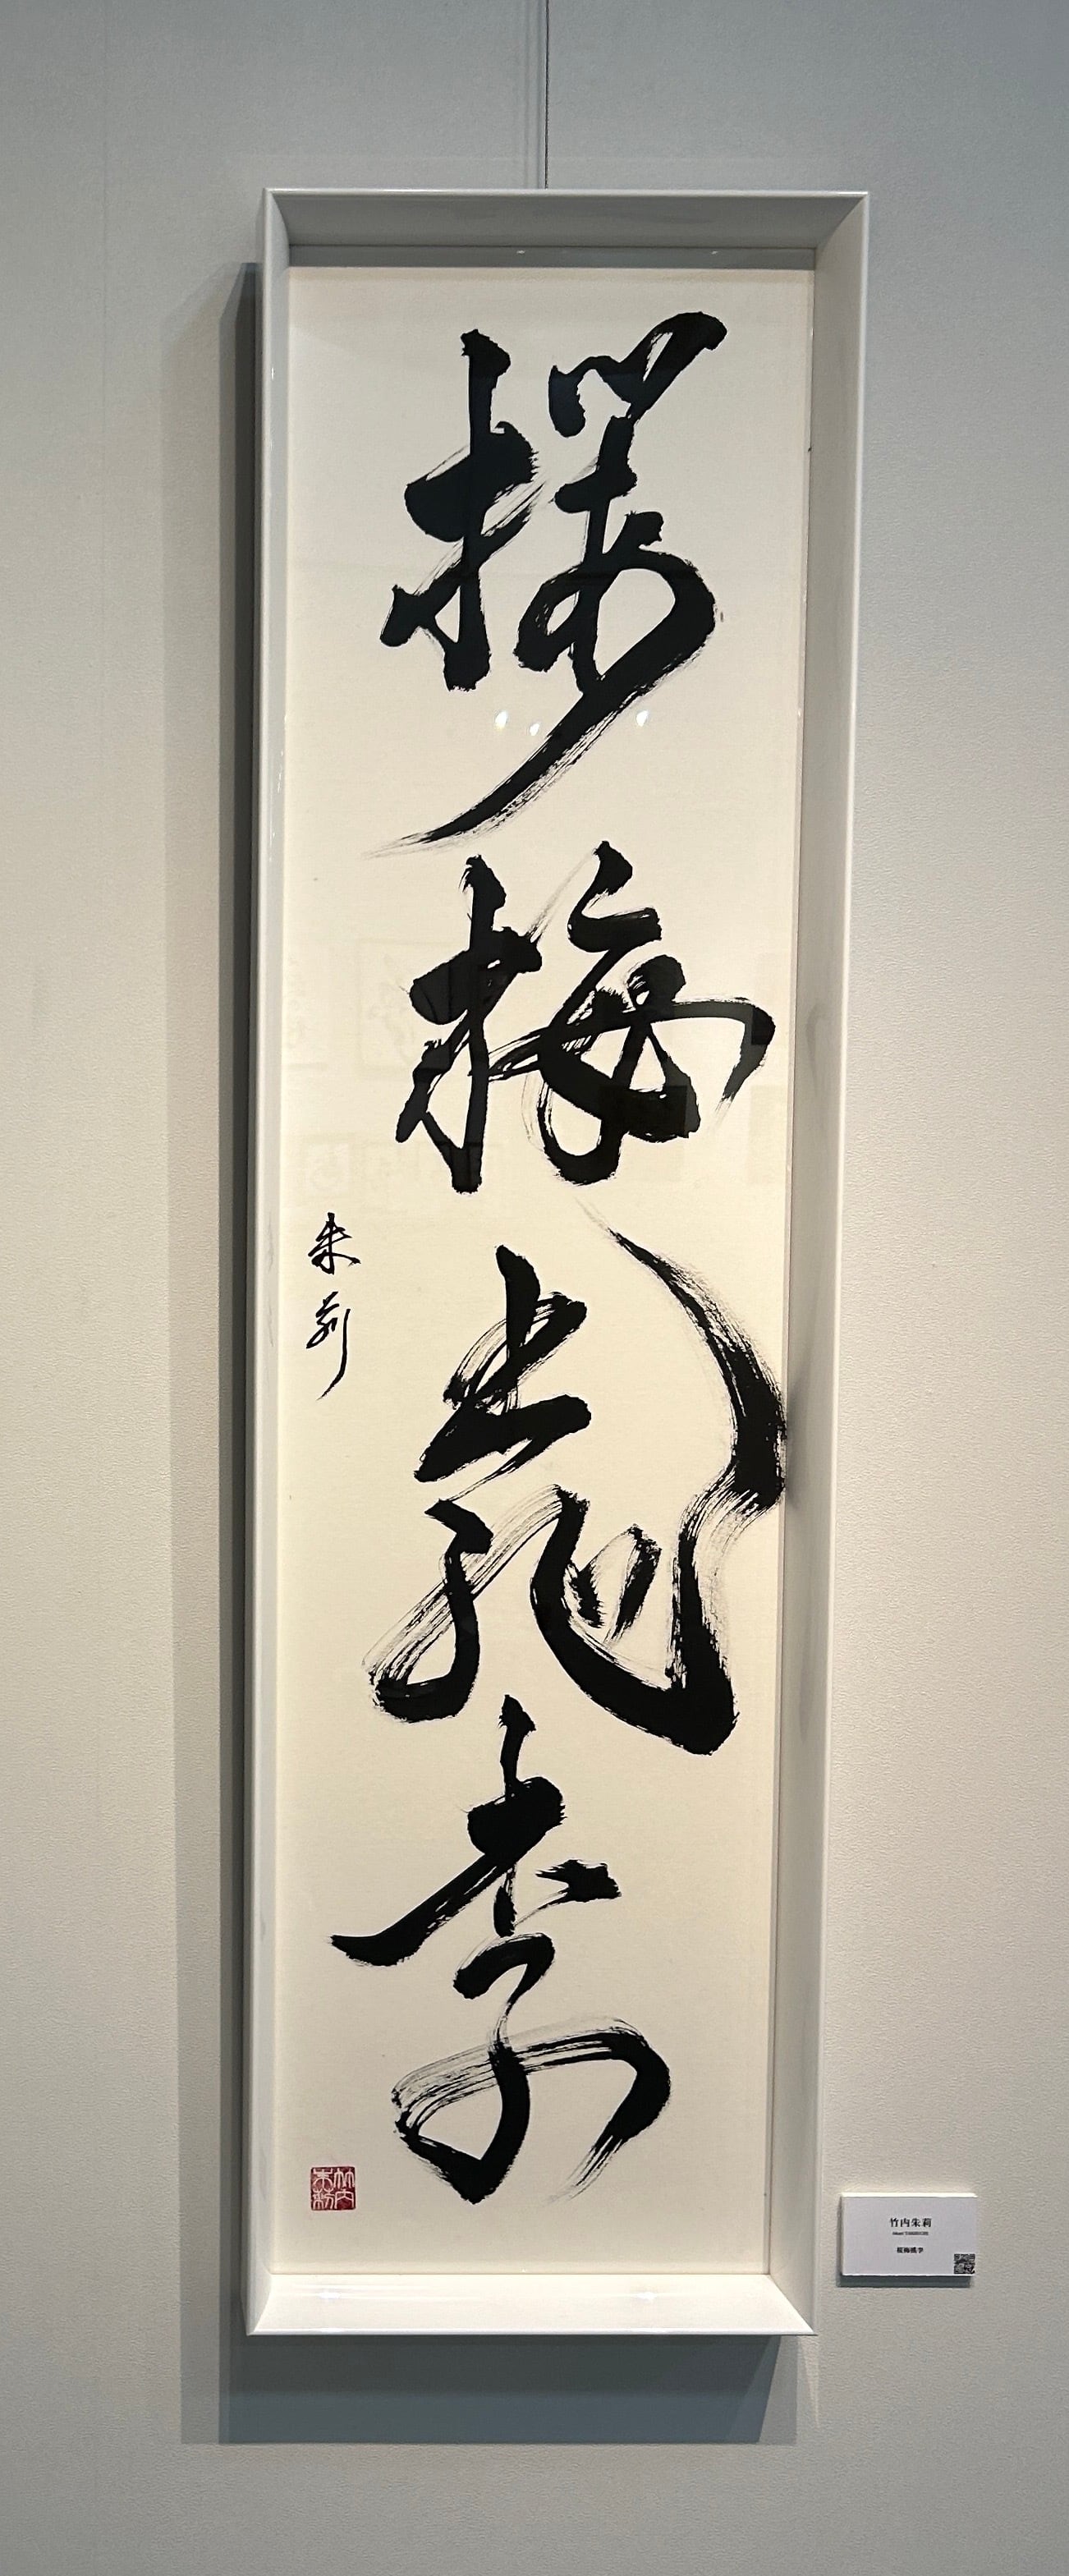 桜梅桃李
朱莉
竹内朱莉
竹内朱莉
Akari TAKEUCHI
桜梅桃李